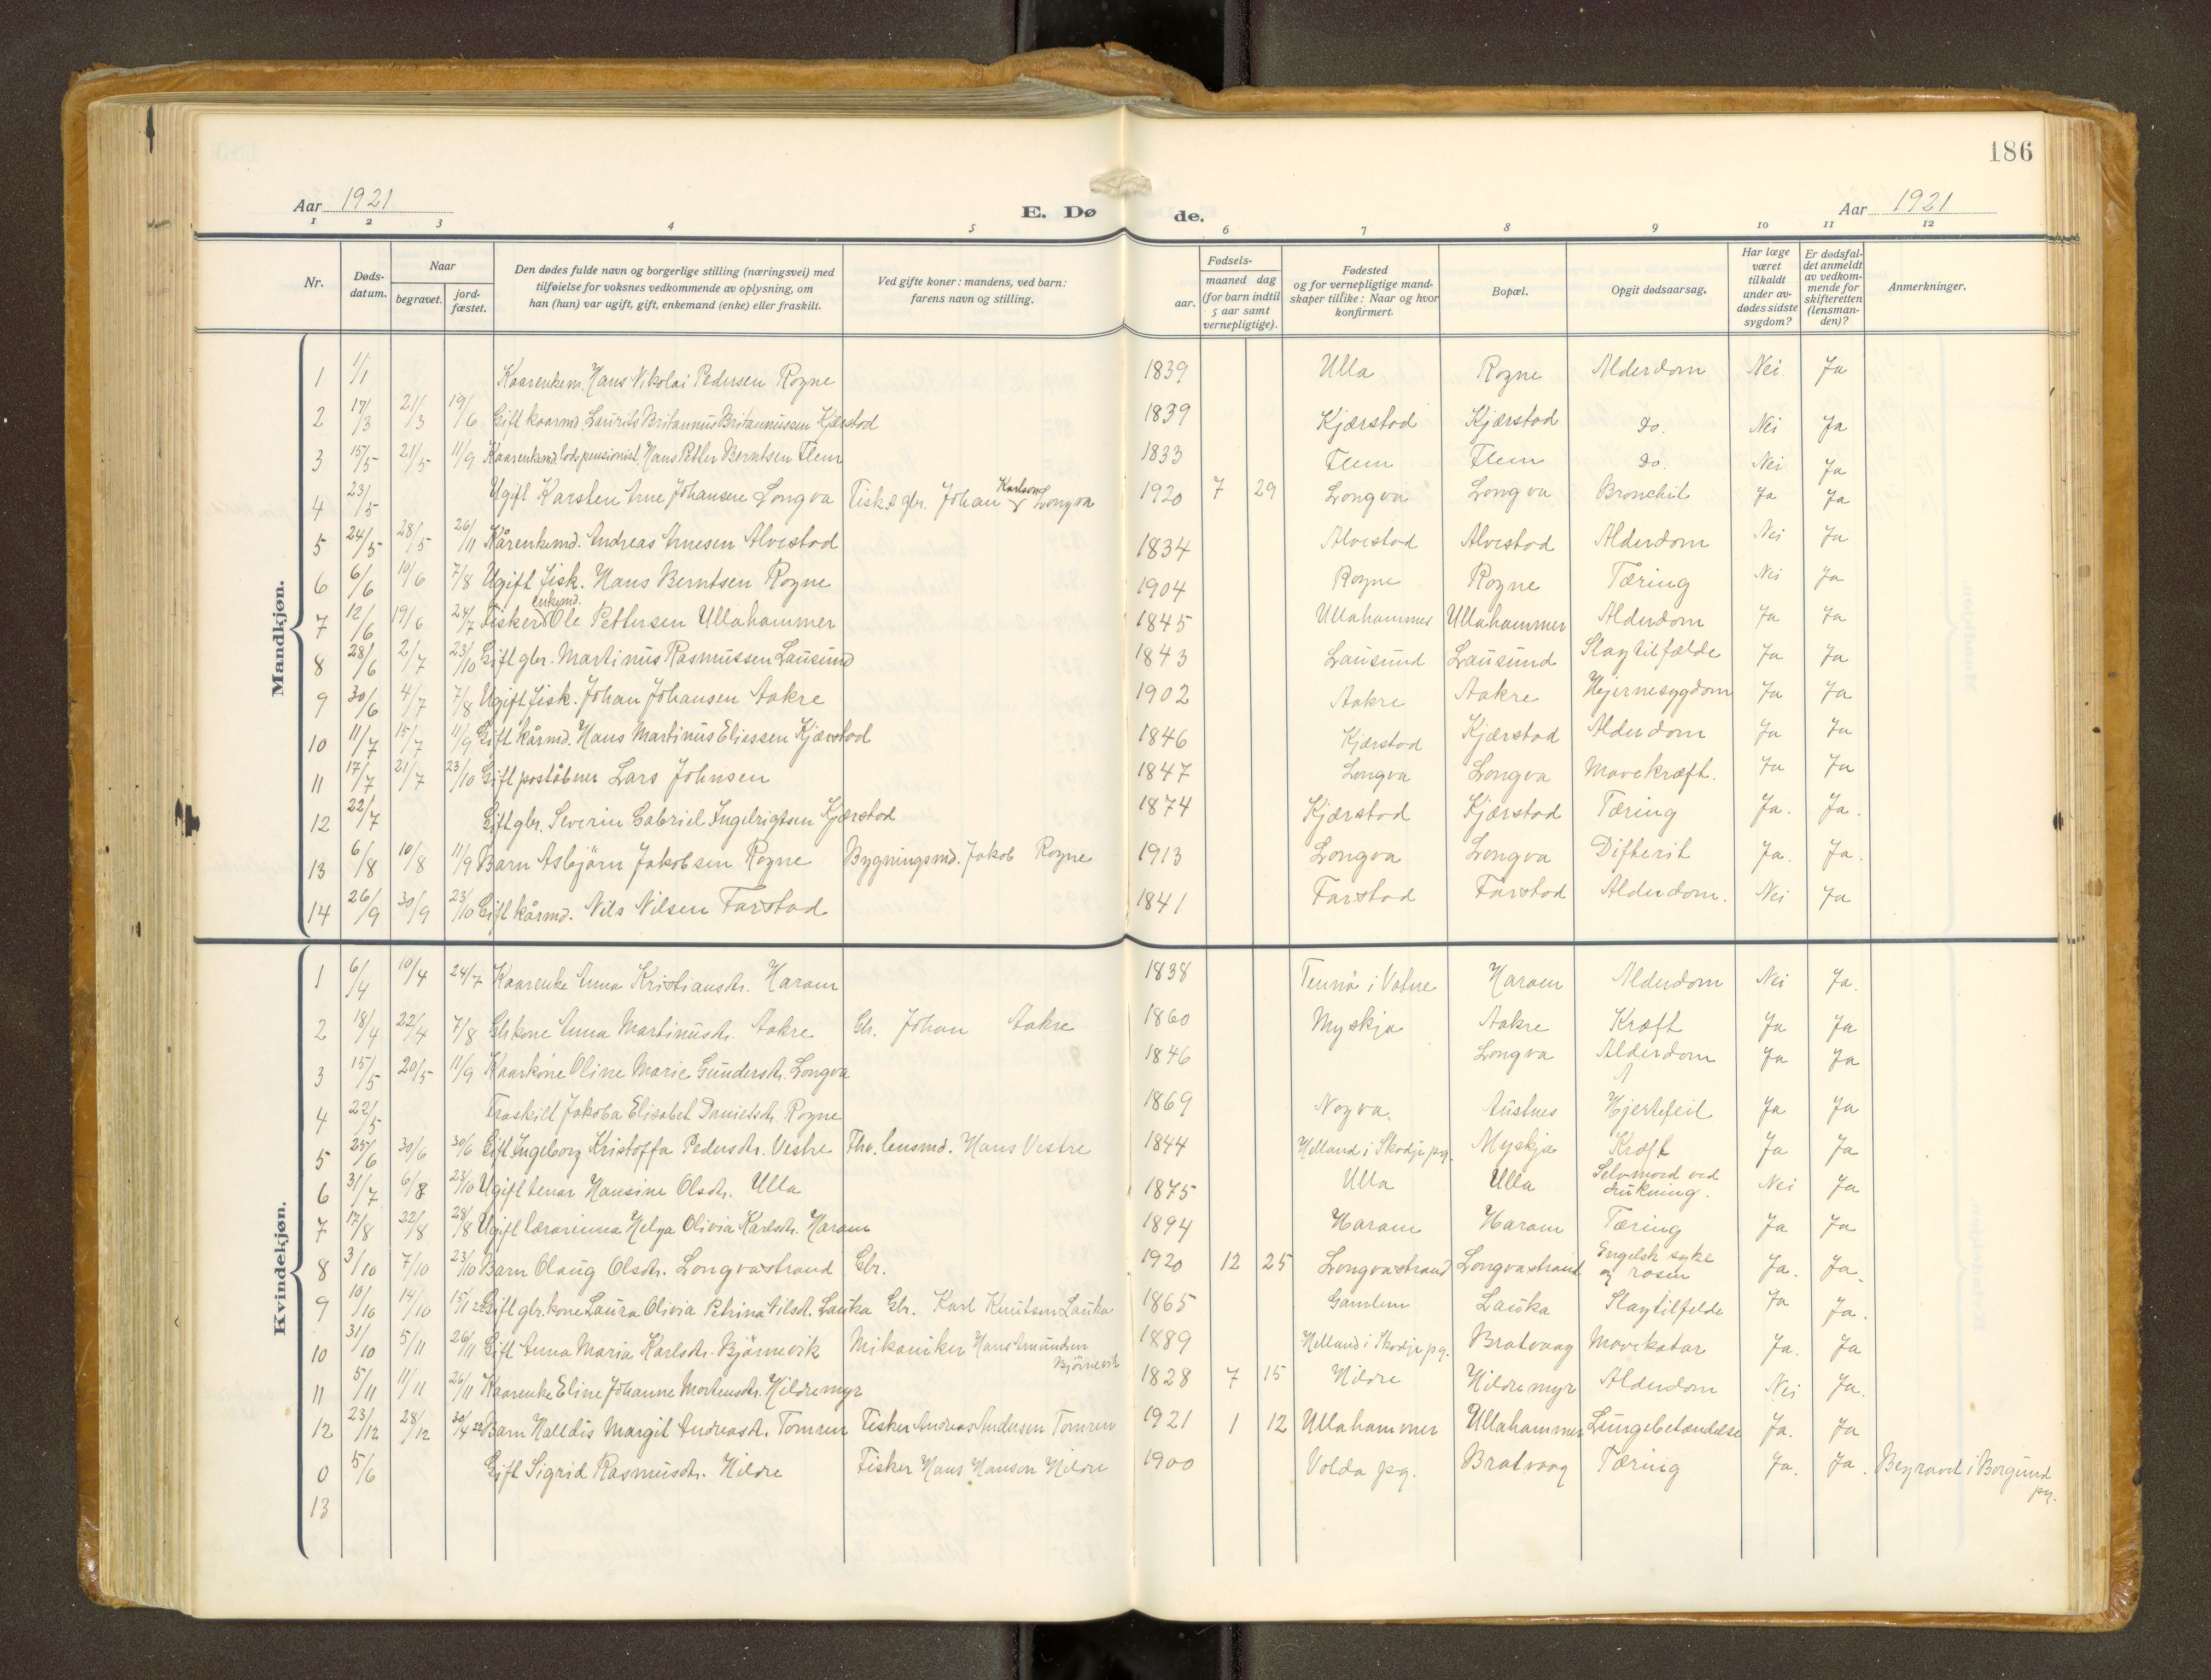 186
Aar 1921
E. Døde.
Aar 1921
1 2 3 4 5 6 7 8 9 10 11 12
Nr.
Døds-
datum.
Naar
begravet.
jord-
fæstet.
Den dødes fulde navn og borgerlige stilling (næringsvei) med
tilføielse for voksnes vedkommende av oplysning, om
han (hun) var ugift, gift, enkemand (enke) eller fraskilt.
Ved gifte koner: mandens, ved barn:
farens navn og stilling.
Fødsels-
aar.
maaned dag
(for barn indtil
5 aar samt
vernepligtige).
Fødested
og for vernepligtige mand-
skaper tillike: Naar og hvor
konfirmert.
Bopæl.
Opgit dødsaarsag.
Har læge
været
tilkaldt
under av-
dødes sidste
sygdom?
Er dødsfal-
det anmeldt
av vedkom-
mende for
skifteretten
(lensman-
den)?
Anmerkninger.
Mandkjøn.
1 1/1 Kaarenkem. Hans Nikolai Pedersen Rogne 1839 Ulla Rogne Alderdom Nei Ja
2 17/3 21/3 19/6 Gift kaarmd. Laurits Britannus Britannussen Kjærstad 1839 Kjærstad Kjærstad do. Nei Ja
3 15/5 21/5 11/9 Kaarenkemd. lodspensionist. Hans Petter Berntsen Flem 1833 Flem Flem do. Nei Ja
4 23/5 Ugift Karsten Arne Johansen Longva Fisk. & gbr. Johan Karlson Longva 1920 7 29 Longva Longva Bronchit Ja Ja
5 24/5 28/5 26/11 Kårenkemd. Andreas Arnesen Alvestad 1834 Alvestad Alvestad Alderdom Nei Ja
6 6/6 10/6 7/8 Ugift fisk. Hans Berntsen Rogne 1904 Rogne Rogne Tæring Nei Ja
7 12/6 19/6 24/7 Fisker enkemd. Ole Pettersen Ullahammer 1845 Ullahammer Ullahammer Alderdom Ja Ja
8 28/6 2/7 23/10 Gift gbr. Martinus Rasmussen Lausund 1843 Lausund Lausund Slagtilfælde Ja Ja
9 30/6 4/7 7/8 Ugift fisk. Johan Johansen Aakre 1902 Aakre Aakre Hjernesygdom Ja Ja
10 11/7 15/7 11/9 Gift kårmd. Hans Martinus Eliassen Kjærstad 1846 Kjærstad Kjærstad Alderdom Ja Ja
11 17/7 21/7 23/10 Gift poståbner Lars Johnsen 1847 Longva Longva Mavekræft. Ja Ja
12 22/7 Gift gbr. Severin Gabriel Ingebrigtsen Kjærstad 1874 Kjærstad Kjærstad Tæring Ja. Ja.
13 6/8 10/8 11/9 Barn Asbjørn Jakobsen Rogne Bygningsmd. Jakob Rogne 1913 Longva Longva Difterit Ja. Ja.
14 26/9 30/9 23/10 Gift kårmd. Nils Nilsen Farstad 1841 Farstad Farstad Alderdom. Nei Ja
Kvindekjøn.
1 6/4 10/4 24/7 Kaarenke Anna Kristiansdtr. Haram 1838 Tennø i Vatne Haram Alderdom Nei Ja.
2 18/4 22/4 7/8 Gbrkone Anna Martinusdtr. Aakre Gbr. Johan Aakre 1860 Myskja Aakre Kræft Ja Ja
3 15/5 20/5 11/9 Kaarkone Oline Marie Gundersdtr. Longva 1846 Longva Alderdom Ja Ja
4 22/5 Fraskilt Jakoba Elisabet Danielsdtr. Rogne 1869 Nogva. Austnes Hjertefeil Ja Ja
5 25/6 30/6 30/6 Gift Ingeborg Kristoffa Pedersdtr. Vestre Fhv. lensmd. Hans Vestre 1844 Helland i Skodje pg. Myskja Kræft Ja Ja
6 31/7 6/8 23/10 Ugift tenar Hansine Olsdtr. Ulla 1875 Ulla Ulla Selvmord ved drukning. Nei Ja
7 17/8 22/8 28/8 Ugift lærerinna Helga Olivia Karlsdtr. Haram 1894 Haram Haram Tæring Ja Ja
8 3/10 7/10 23/10 Barn Olaug Olsdtr. Longvastrand Gbr. 1920 12 25 Longvastrand Longvastrand Engelsk syke og rosen Ja. Ja.
9 10/10 14/10 15/1 22 Gift gbr.kone Laura Olivia Petrina Nilsdt. Lauka Gbr. Karl Knutsen Lauka 1865 Gamlem Lauka Slagtilfelde Ja Ja.
10 31/10 5/11 26/11 Gift Anna Maria Karlsdtr. Bjørnevik Mikaniker Hans Amundsen Bjørnevik 1889 Helland i Skodje pg. Bratvaag Mavekatar Ja. Ja
11 5/11 11/11 26/11 Kaarenke Eline Johanne Mortensdtr. Hildremyr 1828 7 15 Hildre Hildremyr Alderdom Nei Ja.
12 23/12 28/12 30/4 22 Barn Halldis Margit Andreasdt. Tomren Fisker Andreas Andersen Tomren 1921 1 12 Ullahammer Ullahammer Lungebetændelse Ja. Ja
0 5/6 Gift Sigrid Rasmusdtr. Hildre Fisker Hans Hanson Hildre 1900 Volda pg. Bratvaag Tæring Ja. Ja. Begravet i Borgund pg.
13